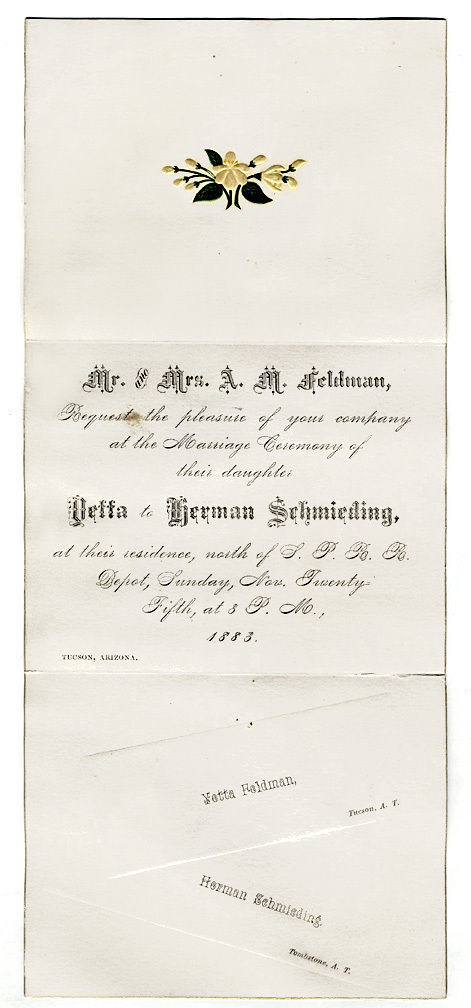 Mr. & Mrs. A. M. Feldman,
Request the pleasure of your company
at the Marriage Ceremony of
their daughter
Yetta to Herman Schmieding,
at their residence, north of S. P. R. R.
Depot, Sunday, Nov. Twenty-
Fifth, at 8 P. M.,
1883.
TUCSON, ARIZONA.
Yetta Feldman,
Tucson, A. T.
Herman Schmieding,
Tombstone, A. T.